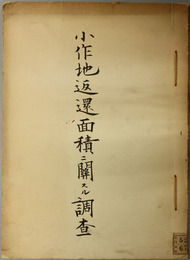 小作地返還面積ニ關スル調查